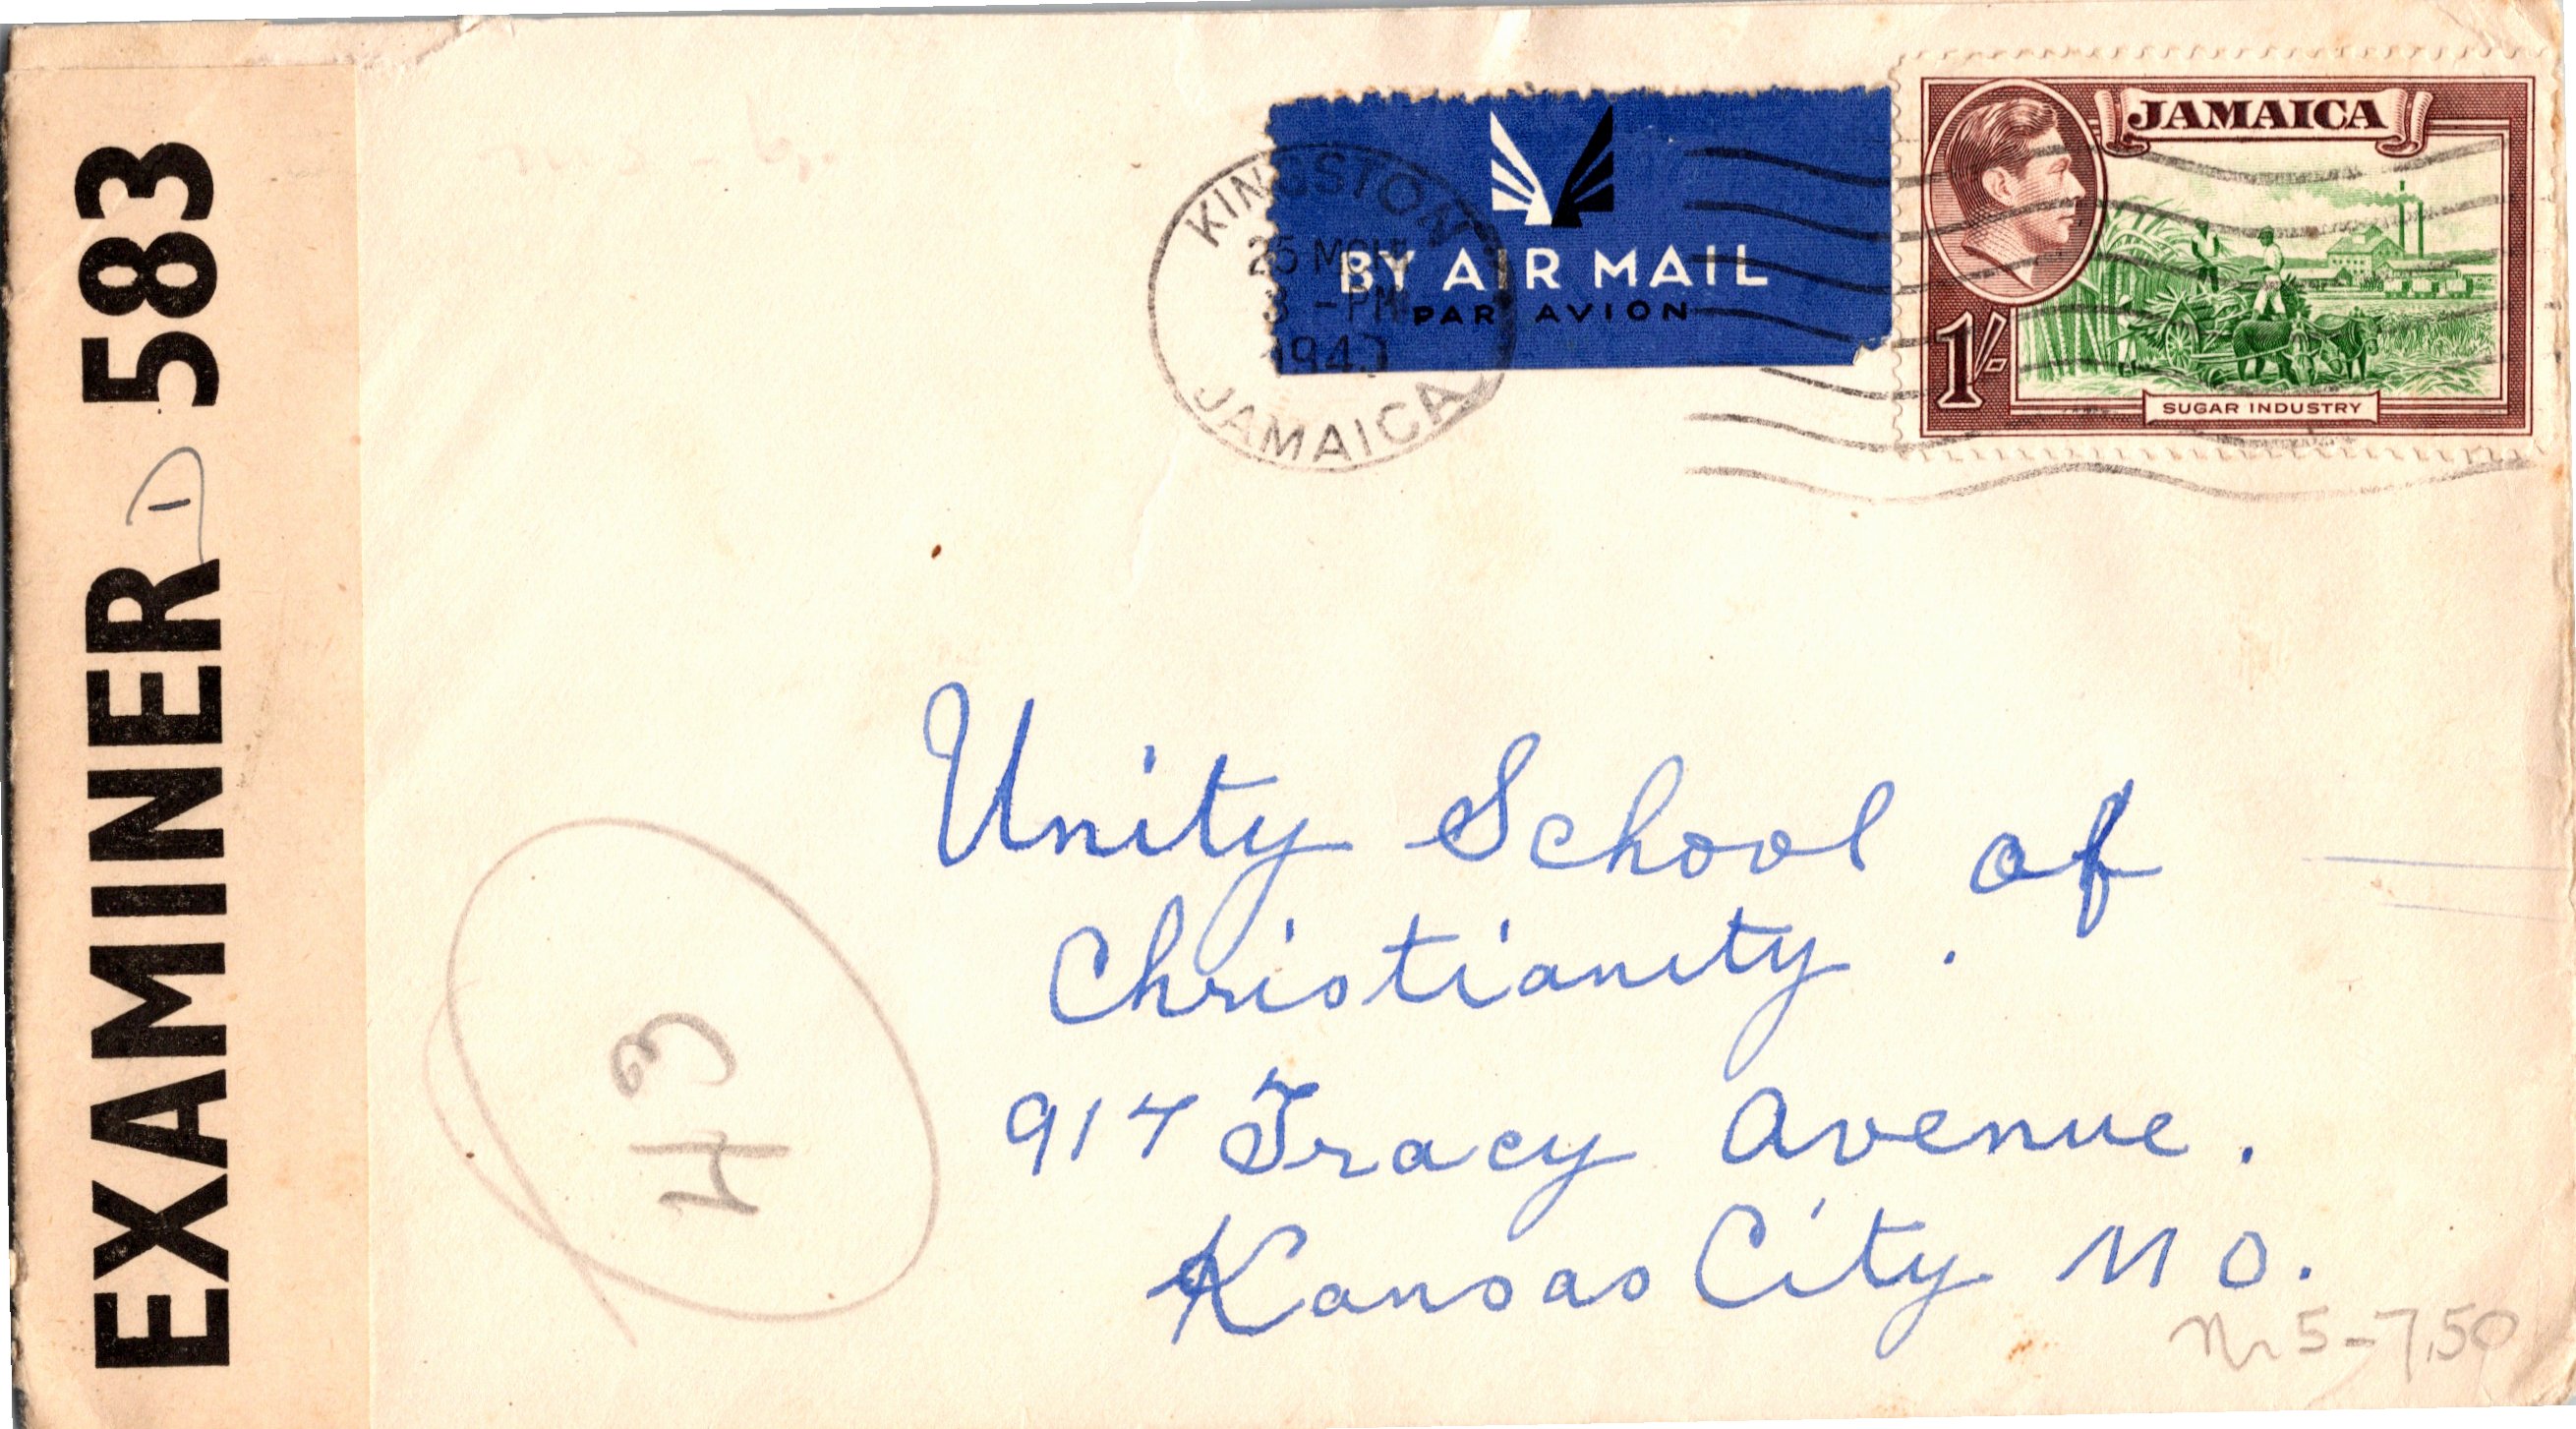 EXAMINER 583
KINGSTON
25 MCH
3 - PM
JAMAICA
BY AIR MAIL
PAR AVION
JAMAICA
1/-
SUGAR INDUSTRY
Unity School of
Christianity.
917 Tracy Avenue.
Kansas City MO.
H3
5-7,50